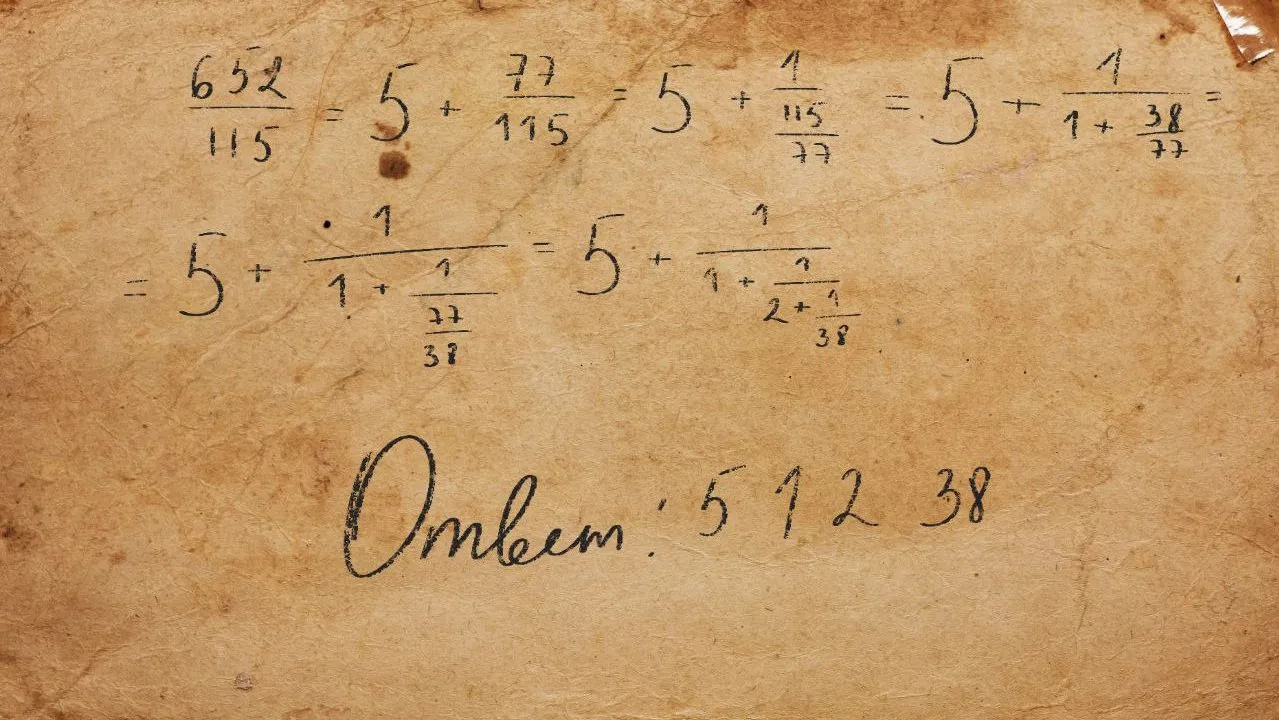 652/115 = 5 + 77/115 = 5 + 1/(115/77) = 5 + 1/(1 + 38/77) =
= 5 + 1/(1 + 1/(77/38)) = 5 + 1/(1 + 1/(2 + 1/38))
Ответ: 5 1 2 38